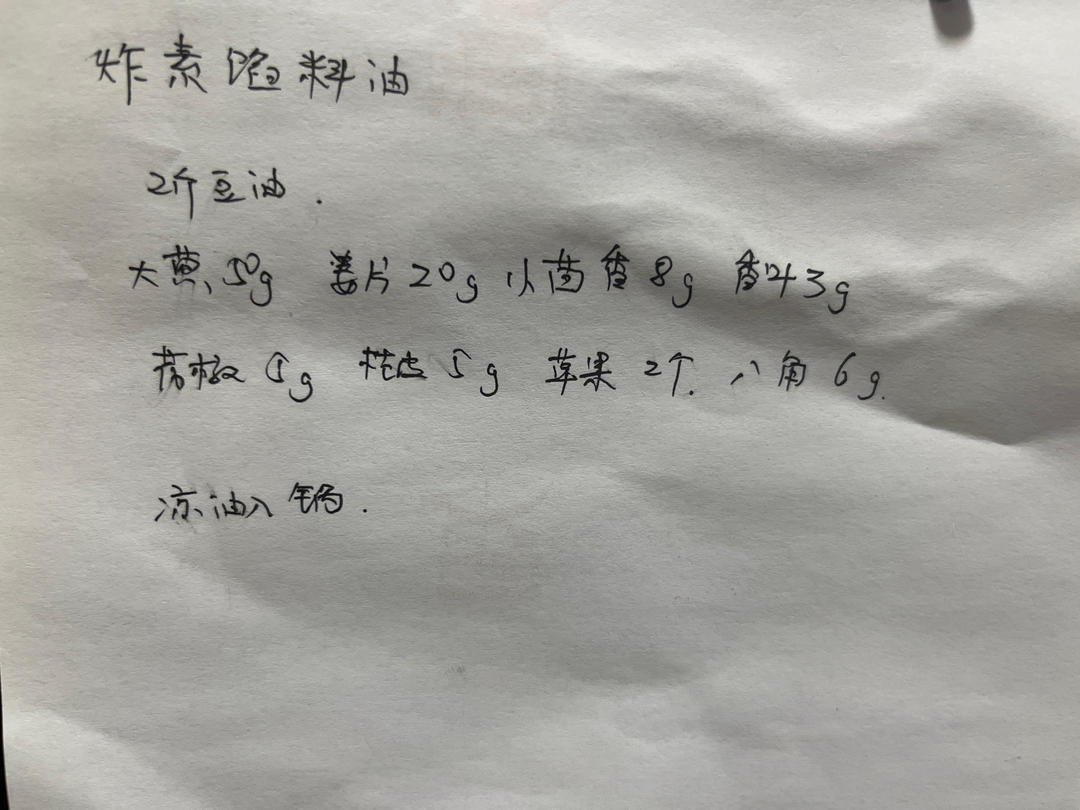 炸素馅料油
2斤豆油.
大葱50g 姜片20g 小茴香8g 香叶3g
花椒5g 桂皮5g 草果2个. 八角6g.
凉油入锅.